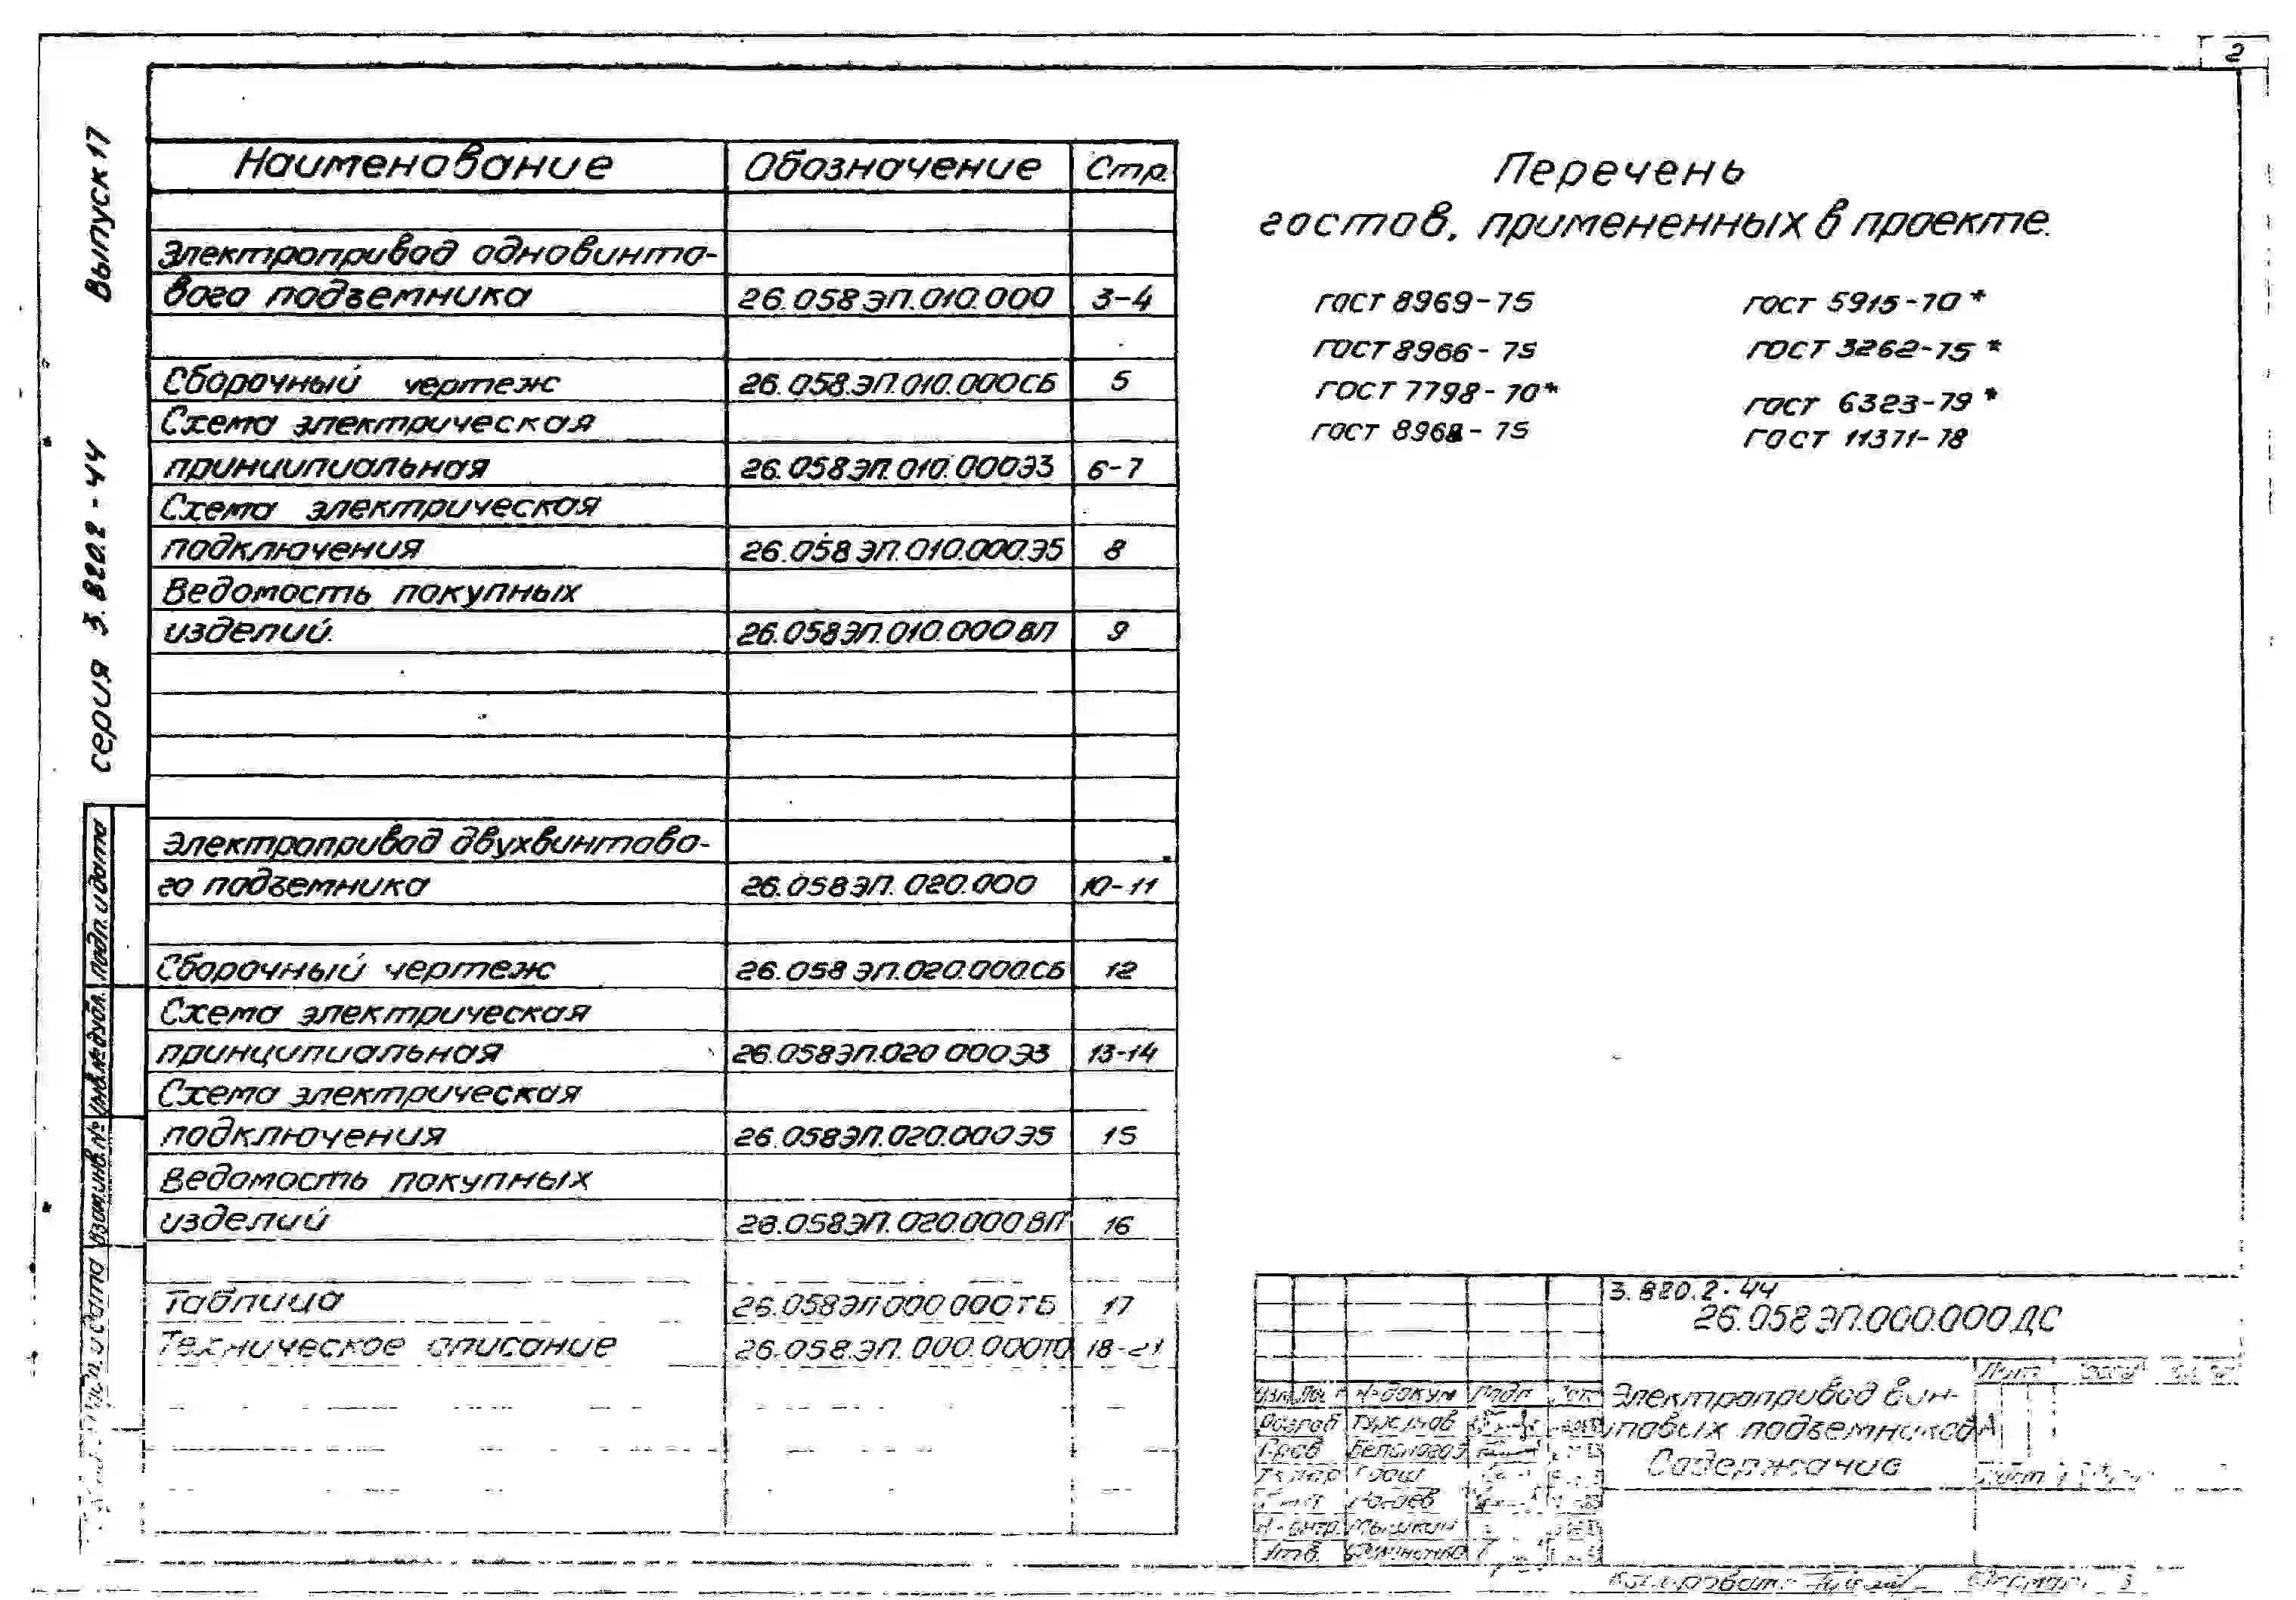 2
Выпуск 17
серия 3.820.2-44
Наименование Обозначение Стр.
Электропривод одновинто-
вого подъемника 26.058ЭП.010.000 3-4
Сборочный чертеж 26.058.ЭП.010.000СБ 5
Схема электрическая
принципиальная 26.058ЭП.010.000Э3 6-7
Схема электрическая
подключения 26.058ЭП.010.000.Э5 8
Ведомость покупных
изделий. 26.058ЭП.010.000ВП 9
Электропривод двухвинтово-
го подъемника 26.058ЭП.020.000 10-11
Сборочный чертеж 26.058ЭП.020.000.СБ 12
Схема электрическая
принципиальная 26.058ЭП.020 000Э3 13-14
Схема электрическая
подключения 26.058ЭП.020.000Э5 15
Ведомость покупных
изделий 26.058ЭП.020.000ВП 16
Таблица 26.058ЭП 000 000ТБ 17
Техническое описание 26.058.ЭП.000.000ТО 18-21
Перечень
гостов, примененных в проекте.
гост 8969-75 гост 5915-70*
гост 8966-75 гост 3262-75*
гост 7798-70* гост 6323-79*
гост 8968-75 гост 11371-78
Подп. и дата
Инв.№ дубл.
Взам.инв.№
3.820.2-44
26.058ЭП.000.000ДС
Электропривод вин-
товых подъемников
Содержание
А
Изм. Лис № докум Подп Дат
Разраб
Пров
Н.контр. Мышкин
Утв.
Копировал: Формат